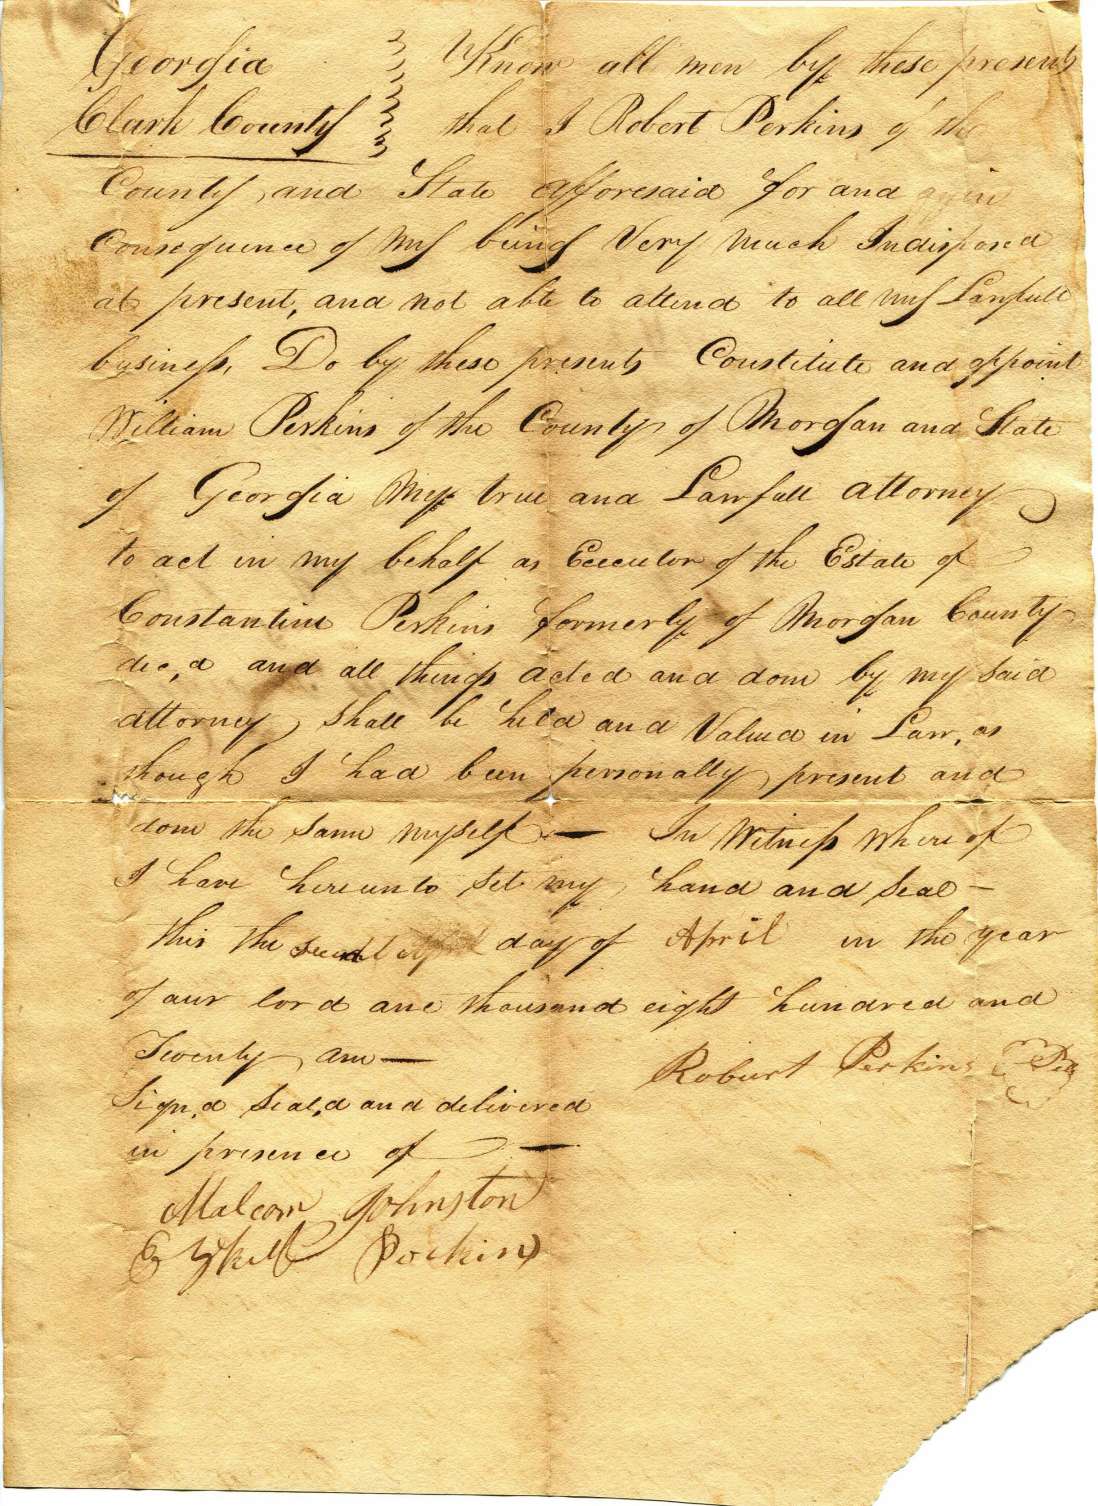 Georgia } Know all men by these presents
Clark County } that I Robert Perkins of the
County, and State afforesaid for and in
Consequence of my being Very much Indisposed
at present, and not able to attend to all my Lawfull
business, Do by these presents Constitute and appoint
William Perkins of the County of Morgan and State
of Georgia my true and Lawfull attorney
to act in my behalf as Executor of the Estate of
Constantine Perkins formerly of Morgan County
dec,d and all things acted and done by my said
attorney, shall be held and Valued in Law, as
though I had been personally present and
done the same myself — In Witness where of
I have hereunto set my hand and seal —
this the day of April in the year
of our lord one thousand eight hundred and
Twenty one —
Robert Perkins
Sign,d seal,d and delivered
in presence of —
Malcom Johnston
Perkins